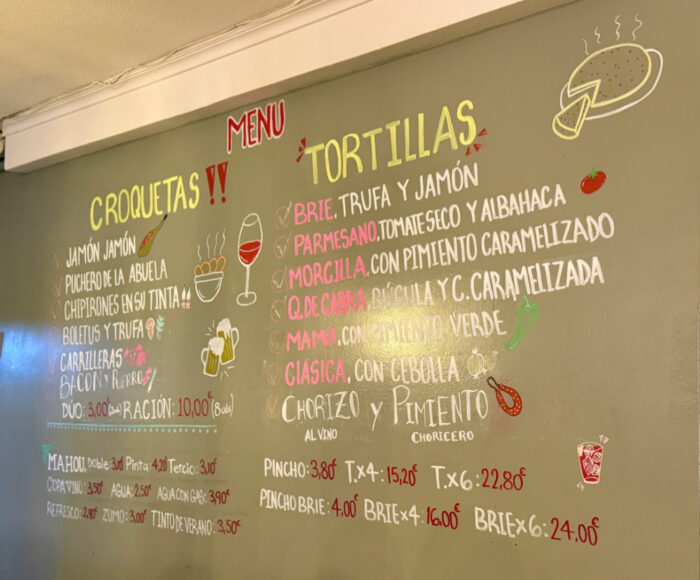 MENU
CROQUETAS!!
JAMÓN JAMÓN
PUCHERO DE LA ABUELA
CHIPIRONES EN SU TINTA
BOLETUS Y TRUFA
CARRILLERAS
BACON Y PUERRO
DÚO: 3,00€ RACIÓN: 10,00€ (8 uds)
MAHOU, Doble: 3,10 Pinta: 4,20 Tercio: 3,10€
COPA VINO: 3,50€ AGUA: 2,50€ AGUA CON GAS: 3,90€
REFRESCO: 2,90€ ZUMO: 3,00€ TINTO DE VERANO: 3,50€
TORTILLAS
BRIE, TRUFA Y JAMÓN
PARMESANO, TOMATE SECO Y ALBAHACA
MORCILLA, CON PIMIENTO CARAMELIZADO
Q. DE CABRA, RÚGULA Y C. CARAMELIZADA
MAMÁ, CON PIMIENTO VERDE
CLÁSICA, CON CEBOLLA
CHORIZO y PIMIENTO
AL VINO CHORICERO
PINCHO: 3,80€ T.x4: 15,20€ T.x6: 22,80€
PINCHO BRIE: 4,00€ BRIEx4: 16,00€ BRIEx6: 24,00€